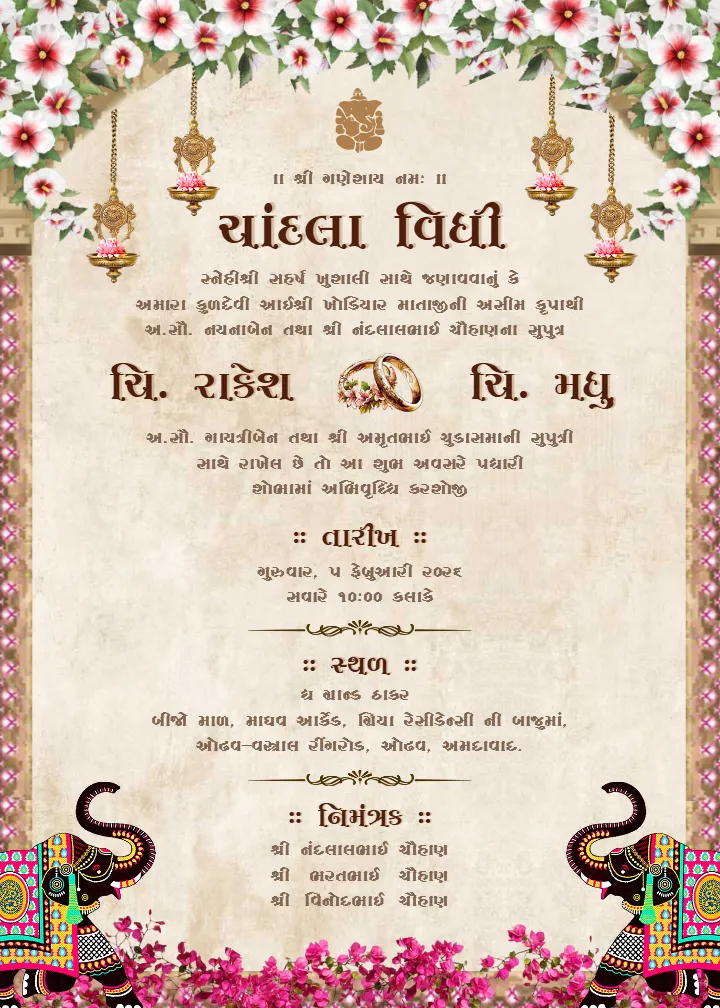 ॥ શ્રી ગણેશાય નમઃ ॥
ચાંદલા વિધી
સ્નેહીશ્રી સહર્ષ ખુશાલી સાથે જણાવવાનું કે
અમારા કુળદેવી આઈશ્રી ખોડિયાર માતાજીની અસીમ કૃપાથી
અ.સૌ. નયનાબેન તથા શ્રી નંદલાલભાઈ ચૌહાણના સુપુત્ર
ચિ. રાકેશ ચિ. મધુ
અ.સૌ. ગાયત્રીબેન તથા શ્રી અમૃતભાઈ ચુડાસમાની સુપુત્રી
સાથે રાખેલ છે તો આ શુભ અવસરે પધારી
શોભામાં અભિવૃધ્ધિ કરશોજી
:: તારીખ ::
ગુરુવાર, ૫ ફેબ્રુઆરી ૨૦૨૬
સવારે ૧૦:૦૦ કલાકે
:: સ્થળ ::
ધ ગ્રાન્ડ ઠાકર
બીજો માળ, માધવ આર્કેડ, શ્રિયા રેસીડેન્સી ની બાજુમાં,
ઓઢવ-વસ્ત્રાલ રીંગરોડ, ઓઢવ, અમદાવાદ.
:: નિમંત્રક ::
શ્રી નંદલાલભાઈ ચૌહાણ
શ્રી ભરતભાઈ ચૌહાણ
શ્રી વિનોદભાઈ ચૌહાણ